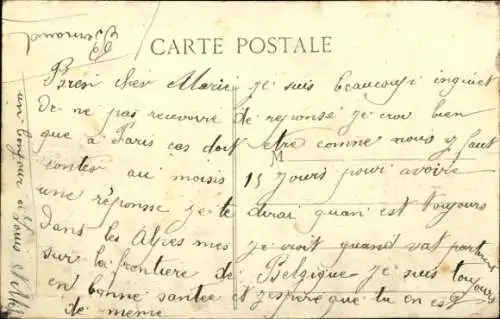 CARTE POSTALE
Bien cher Marie je suis beaucoup inquiet
de ne pas recevoire de reponse je croi bien
que a Paris cas doit etre comme nous y faut
contes au moisis 15 Jours pour avoire
une réponse je te dirai quon est toujours
dans les Alpes mes je croit quon vat partires
sur la frontiere de Belgique je suis toujours
en bonne santee et j'espire que tu en es
de meme
un bonjour a tous
M